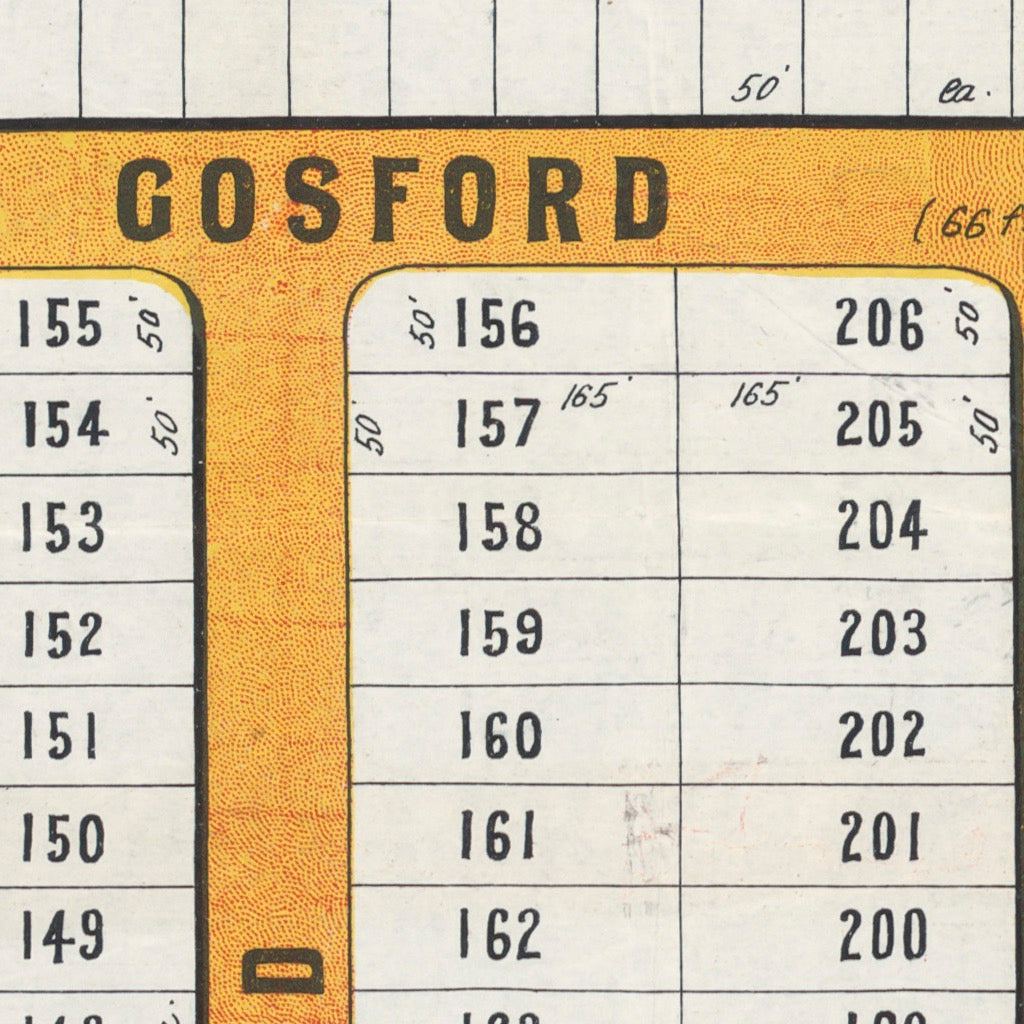 50' ea.
GOSFORD
(66
155 50' 50' 156 206 50'
154 50' 50' 157 165' 165' 205 50'
153 158 204
152 159 203
151 160 202
150 161 201
149 162 200
D